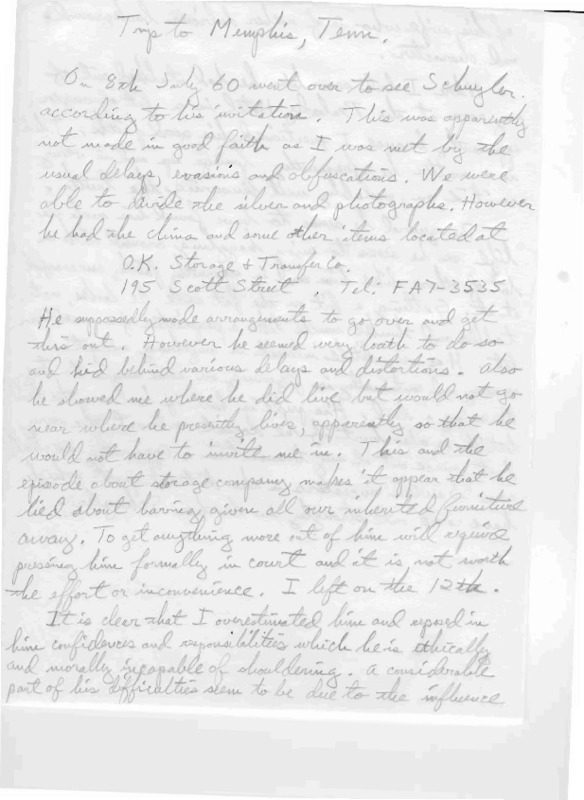 Trip to Memphis, Tenn.
On 8th July 60 went over to see Schuyler.
according to his invitation. This was apparently
not made in good faith as I was met by the
usual delays, evasions and obfuscations. We were
able to divide the silver and photographs. However
he had the china and some other items located at
O.K. Storage & Transfer Co.
195 Scott Street, Tel: FA7-3535
He supposedly made arrangements to go over and get
this out. However he seemed very loath to do so
and hid behind various delays and distortions. Also
he showed me where he did live but would not go
near where he presently lives, apparently so that he
would not have to invite me in. This and the
episode about storage company makes it appear that he
lied about having given all our inherited furniture
away. To get anything more out of him will require
pressing him formally in court and it is not worth
the effort or inconvenience. I left on the 12th.
It is clear that I overestimated him and reposed in
him confidences and responsibilities which he is ethically
and morally incapable of shouldering. A considerable
part of his difficulties seem to be due to the influence